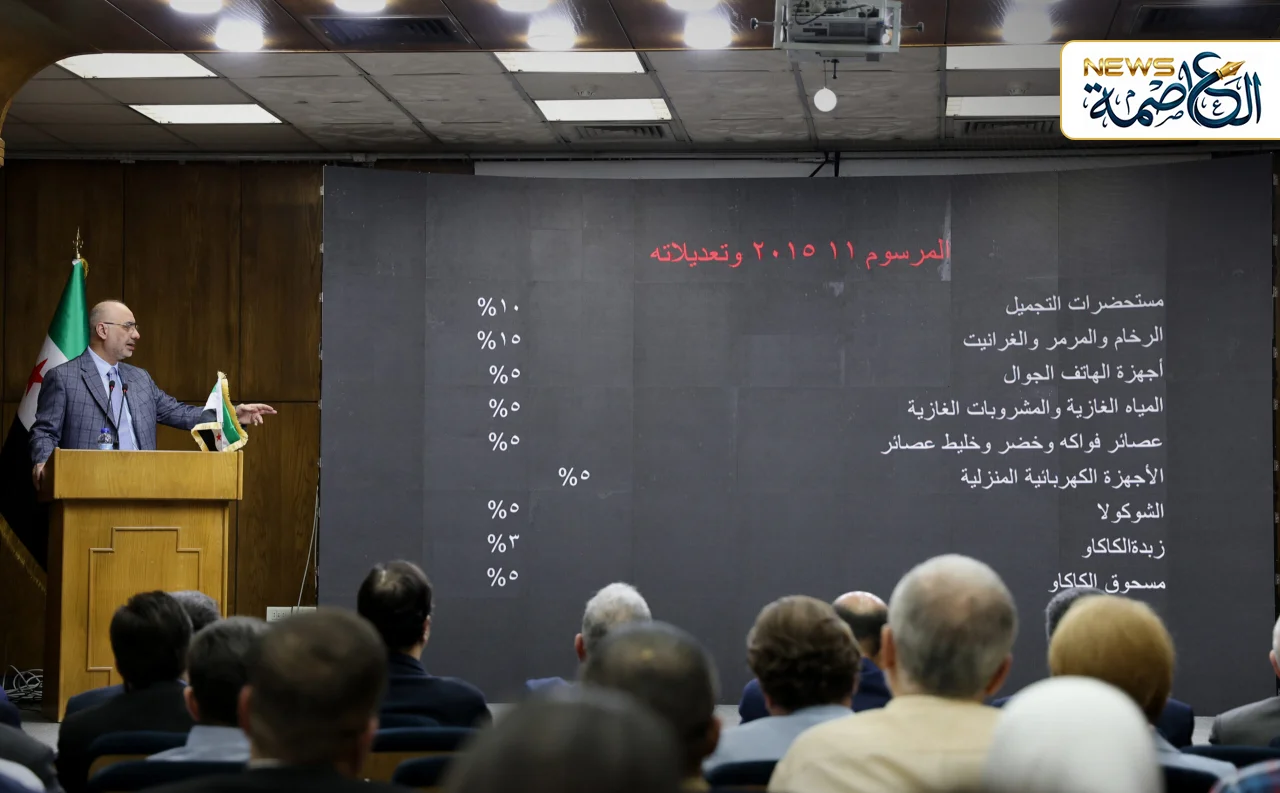 NEWS
العاصمة
المرسوم ١١ ٢٠١٥ وتعديلاته
مستحضرات التجميل ١٠%
الرخام والمرمر والغرانيت ١٥%
أجهزة الهاتف الجوال ٥%
المياه الغازية والمشروبات الغازية ٥%
عصائر فواكه وخضر وخليط عصائر ٥%
الأجهزة الكهربائية المنزلية ٥%
الشوكولا ٥%
زبدةالكاكاو ٣%
مسحوق الكاكاو ٥%